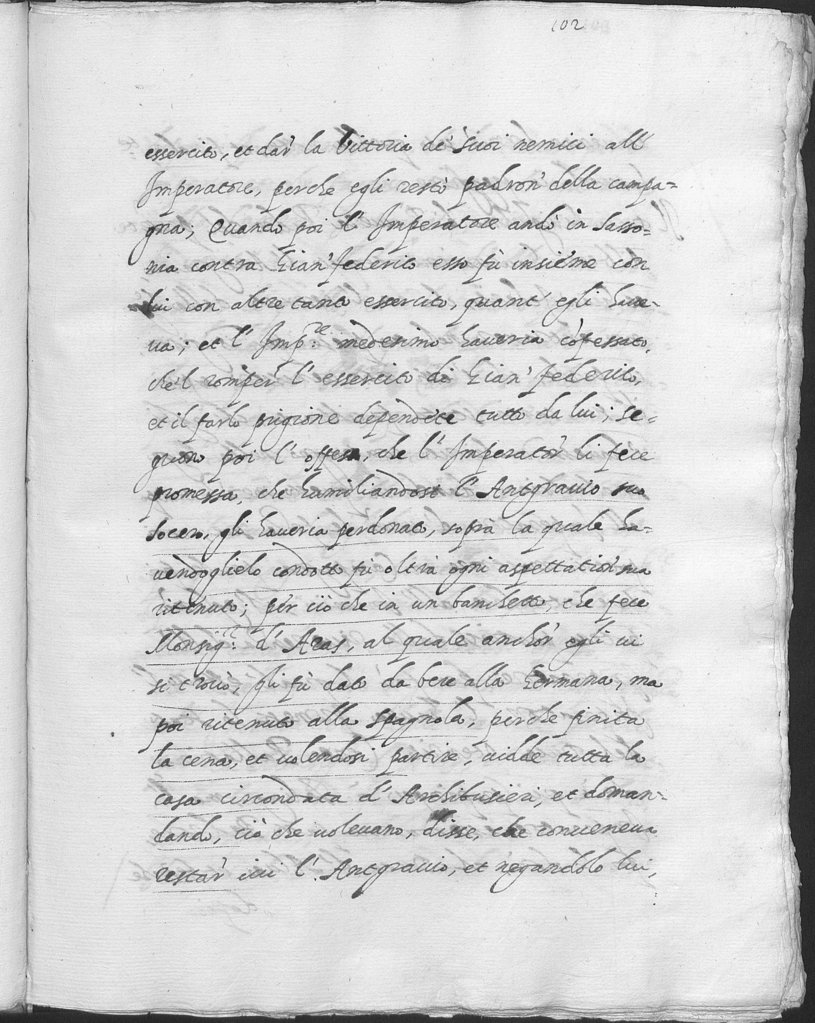 102
essercito, et dar' la Vittoria de' suoi nemici all'
Imperatore, perche egli restò padron' della campa=
gna; Quando poi l' Imperatore andò in Sasso=
nia contra Gian' federico esso fù insieme con
lui con altre tanto essercito, quant' egli have=
va; et l' Imp.re medesimo haveria cōfessato,
che'l romper' l' essercito di Gian' federico,
et il farlo prigione dependete tutto da lui; se=
guono poi l' offesa, che l' Imperator' li fece
promessa, che humiliandosi l' Antgravio suo
socero, gli haveria perdonato, sopra la quale ha=
vendoglielo condotto fù oltra ogni aspettation' sua
ritenuto; per ciò che in un banchetto, che fece
Monsig.r d' Aras, al quale anchor' egli vi
si trovò, gli fù dato da bere alla Germana, ma
poi ritenuto alla spagnola, perche finita
la cena, et volendosi partire, vidde tutta la
casa circondata d' Archibusieri, et doman=
dando, ciò che volevano, disse, che conveneva
restar' ivi l' Antgravio, et negandolo lui,